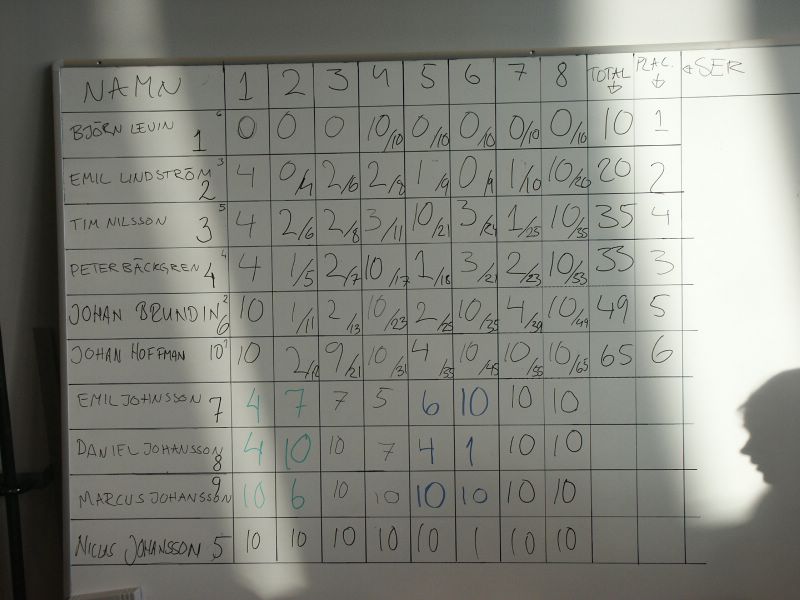 NAMN 1 2 3 4 5 6 7 8 TOTAL PLAC. SER
BJÖRN LEVIN 6 1 0 0 0 10/10 0/10 0/10 0/10 0/10 10 1
EMIL LINDSTRÖM 3 2 4 0/4 2/6 2/8 1/9 0/9 1/10 10/20 20 2
TIM NILSSON 5 3 4 2/6 2/8 3/11 10/21 3/24 1/25 10/35 35 4
PETER BÄCKGREN 4 4 4 1/5 2/7 10/17 1/18 3/21 2/23 10/33 33 3
JOHAN BRUNDIN 2 6 10 1/11 2/13 10/23 2/25 10/35 4/39 10/49 49 5
JOHAN HOFFMAN 10 1 10 2/12 9/21 10/31 4/35 10/45 10/55 10/65 65 6
EMIL JOHNSSON 7 4 7 7 5 6 10 10 10
DANIEL JOHANSSON 8 4 10 10 7 4 1 10 10
MARCUS JOHANSSON 9 10 6 10 10 10 10 10 10
NICLAS JOHANSSON 5 10 10 10 10 10 1 10 10